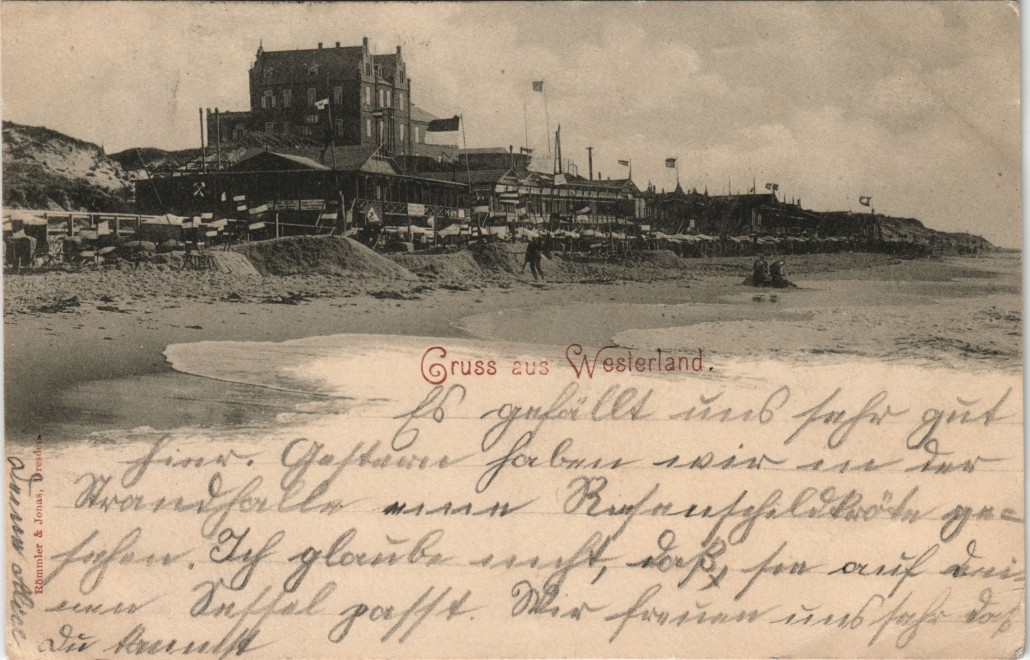 Gruss aus Westerland.
Es gefällt uns sehr gut
hier. Gestern haben wir in der
Strandhalle eine Riesenschildkröte ge-
sehen. Ich glaube nicht, daß sie auf dei-
nen Sessel passt. Wir freuen uns sehr daß
Du kannst
Römmler & Jonas, Dresden.